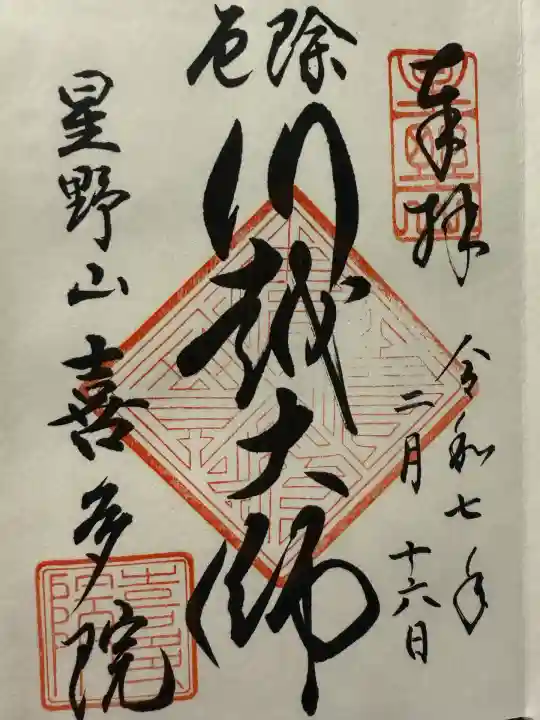 奉拝
令和七年
二月十六日
厄除
川越大師
星野山喜多院